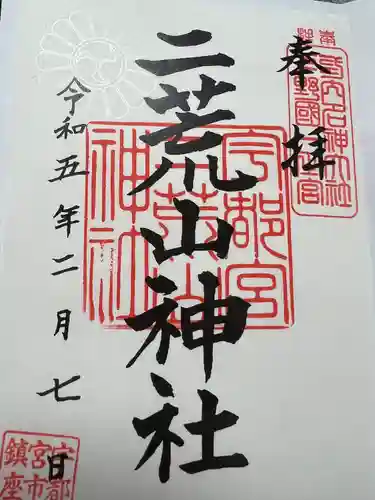 奉拝
二荒山神社
令和五年二月七日
宇都宮
二荒山
神社
宇都
宮市
鎮座